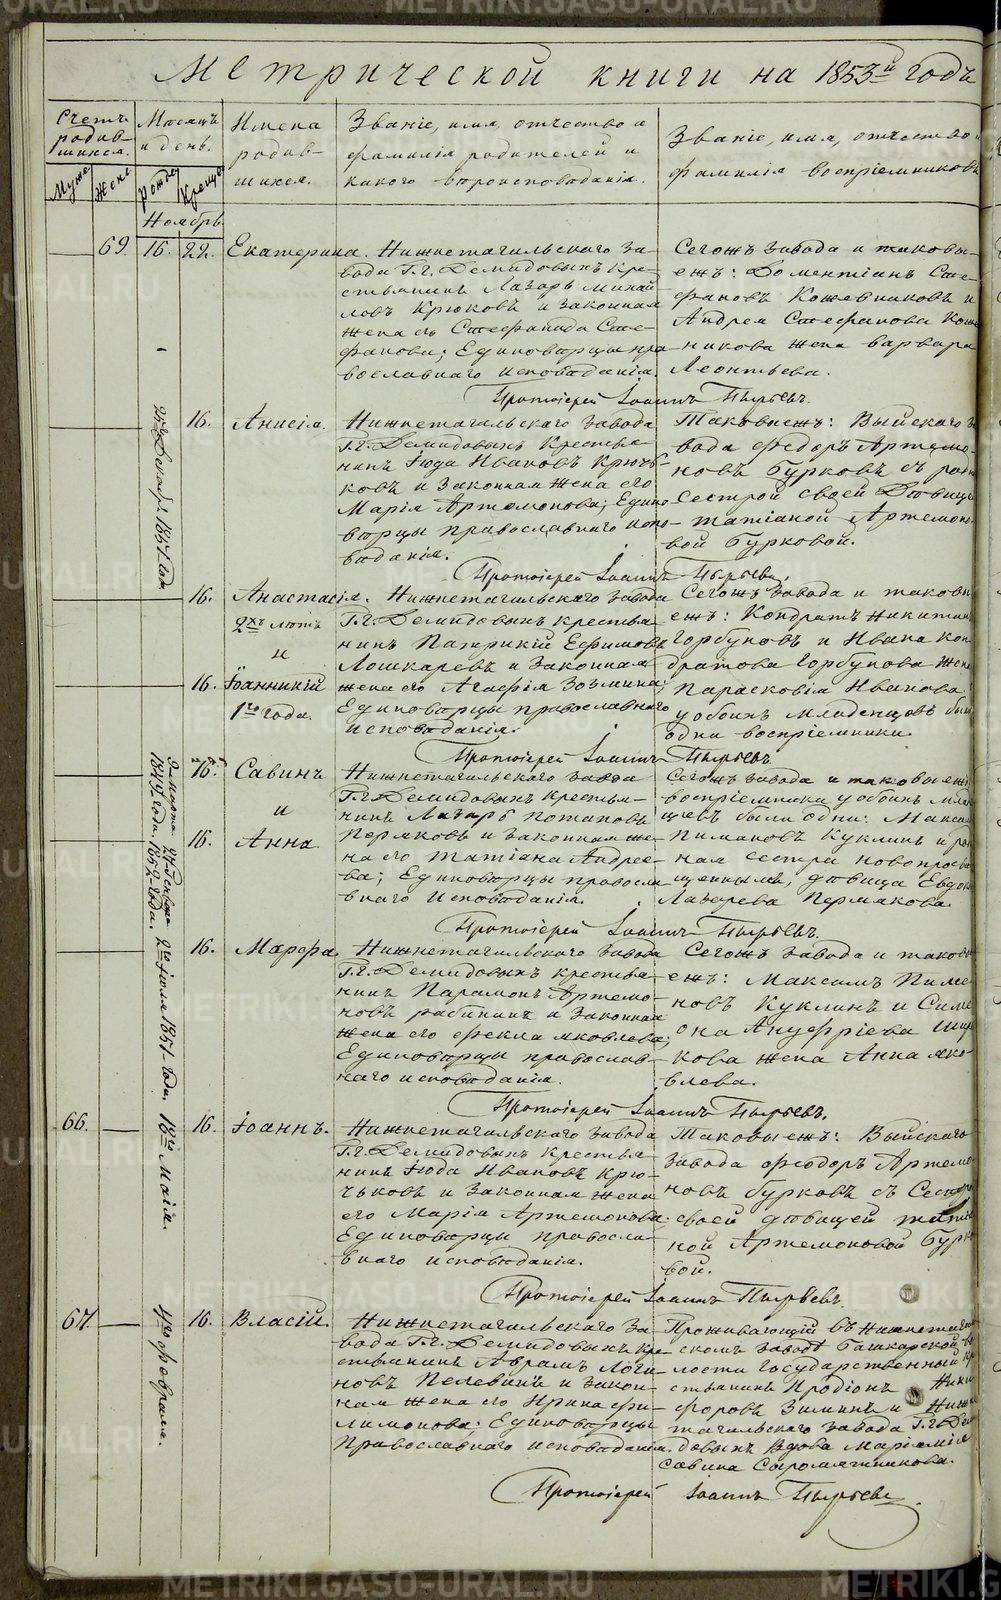 Метрической книги на 1853й годъ
Счетъ родив-шихся.
Муже
Жене
Месяцъ и день.
Рожде
Креще
Имена родив-шихся.
Званіе, имя, отчество и
фамилія родителей и
какого вѣроисповѣданія.
Званіе, имя, отчество и
фамилія воспріемниковъ
Ноябрь
69. 16. 22. Екатерина.
Нижнетагильскаго за-
вода Г.г. Демидовыхъ кре-
стьянинъ Лазарь Михай-
ловъ Крюковъ и законная
жена его Стефанида Сте-
фанова; Единоверцы пра-
вославнаго исповѣданія.
Сегожъ завода и таковы-
ежъ: Доментіанъ Сте-
фановъ Кожевниковъ и
Андрея Стефанова Коже
никова жена Варвара
Леонтьева.
Протоіерей Іоаннъ Пырьевъ.
Декабря 1851 года
16. Анисія.
Нижнетагильскаго завода
Г.г. Демидовыхъ крестья-
нинъ Іюда Ивановъ Крюч-
ковъ и законная жена его
Марія Артемонова; Едино-
верцы православнаго испо-
веданія.
Таковыежъ: Выйскаго за
вода Федоръ Артемо-
новъ Бурковъ съ родн
сестрой своей Дѣвице
Татіаной Артемоно-
вой Бурковой.
Протоіерей Іоаннъ Пырьевъ.
16. Анастасія.
2хъ летъ
и
16. Іоанникій
1го года.
Нижнетагильскаго завода
Г.г. Демидовыхъ крестья-
нинъ Патрикій Ефимовъ
Лошкаревъ и законная
жена его Агафія Зозмина;
Единоверцы православнаго
исповѣданія.
Сегожъ завода и таковы
ежъ: Кондратъ Никитинъ
Горбуновъ и Ивана Кон-
дратова Горбунова жена
Парасковія Иванова
у обоихъ младенцовъ были
одни воспріемники.
Протоіерей Іоаннъ Пырьевъ
9 марта 1849 года.
1852 года.
16. Савинъ
и
16. Анна
Нижнетагильскаго завода
Г.г. Демидовыхъ крестья-
нинъ Лазарь Потаповъ
Пермяковъ и законная же-
на его Татіана Андрее-
ва; Единоверцы правосла-
внаго исповѣданія.
Сегожъ завода и таковыежъ
воспріемники у обоихъ младен
цевъ были одни: Максимъ
Пимановъ Куклинъ и род
ная сестра новопросве
щенныхъ, дѣвица Евдок
Лазарева Пермякова.
Протоіерей Іоаннъ Пырьевъ.
2го іюля 1851 года.
16. Марфа.
Нижнетагильскаго завода
Г.г. Демидовыхъ крестья-
нинъ Парамонъ Артемо-
новъ рабининъ и законная
жена его Фекла Яковлева;
Единоверцы православ-
наго исповѣданія.
Сегожъ завода и таковы
ежъ: Максимъ Пиме
новъ Куклинъ и Симе
она Ануфріева
кова жена Анна Яко-
влева.
Протоіерей Іоаннъ Пырьевъ.
18го Маія.
66. 16. Іоаннъ.
Нижнетагильскаго завода
Г.г. Демидовыхъ крестья-
нинъ Іюда Ивановъ Крю-
чьковъ и законная жена
его Марія Артемонова;
Единоверцы правосла-
внаго исповѣданія.
Таковыежъ: Выйскаго
завода Феодоръ Артемо
новъ Бурковъ съ Сестро
своей дѣвицей Татіа
ной Артемоновой Бурко
вой.
Протоіерей Іоаннъ Пырьевъ.
4го февраля.
67. 16. Власій.
Нижнетагильскаго за-
вода Г.г. Демидовыхъ кре-
стьянинъ Аврамъ Логи-
новъ Пелевинъ и закон-
ная жена его Ирина Фи-
лимонова; Единоверцы
Православнаго исповѣданія.
Проживающій въ Нижнетагил
скомъ заводѣ Башкарской во-
лости государственный кре
стьянинъ Иродіонъ Ники
форовъ Зиминъ и Нижне
тагильскаго завода Г.г. Деми
довыхъ Вдова Маріамія
Савина Сыромятникова.
Протоіерей Іоаннъ Пырьевъ.
METRIKI.GASO-URAL.RU